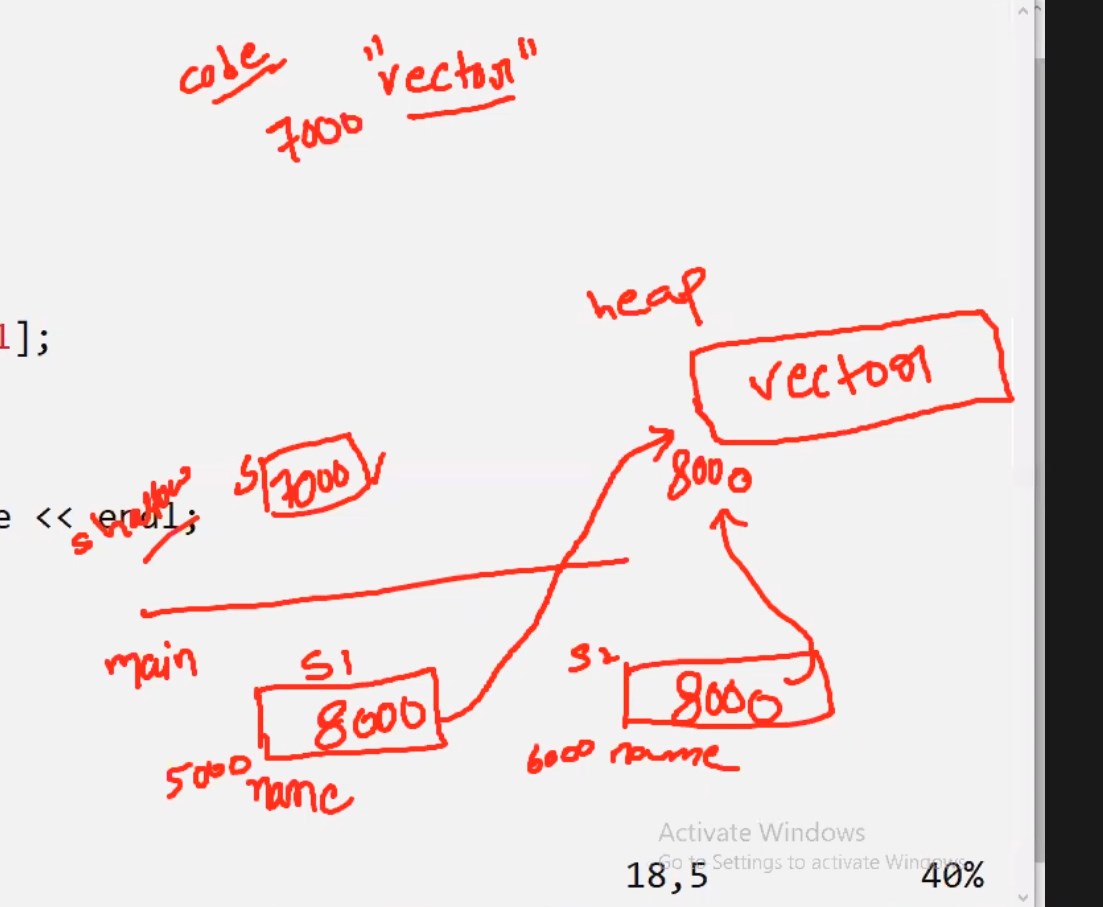 code "vector"
7000
heap
1];
vector
S 7000
8000
e << endl;
main
S1
S2
8000
8000
5000
name
6000 name
Activate Windows
Go to Settings to activate Windows.
18,5 40%